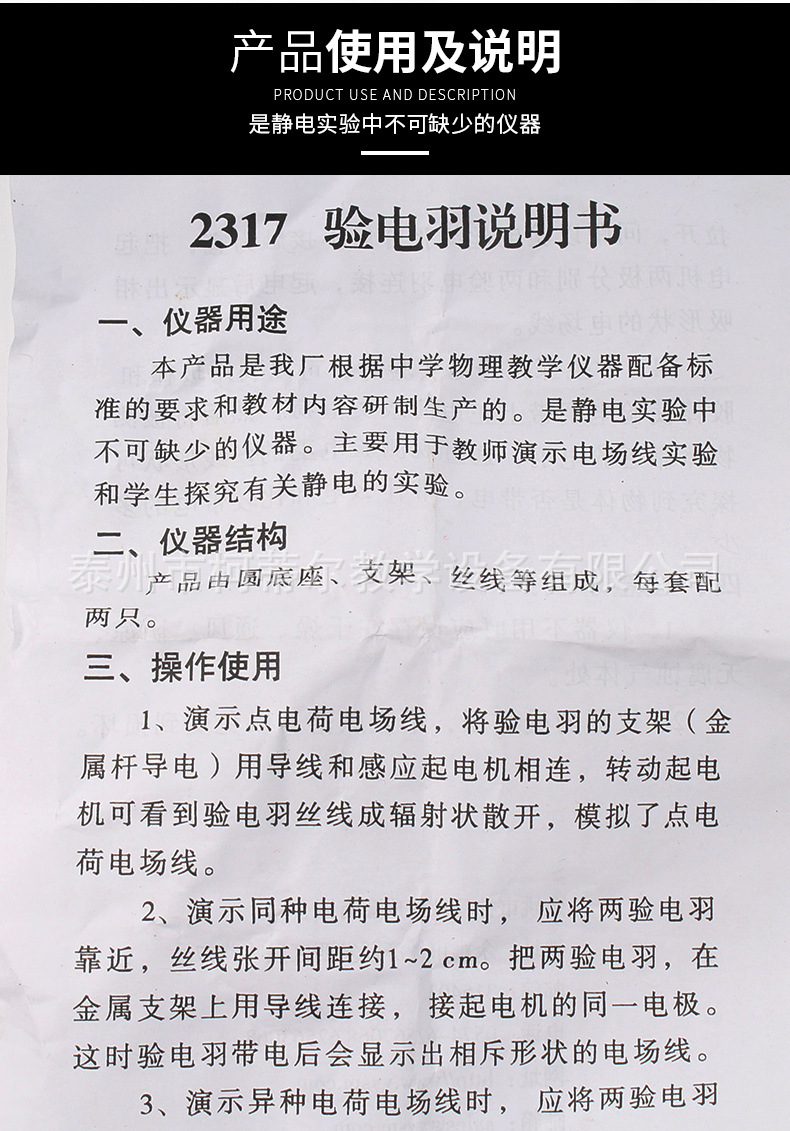 产品使用及说明
PRODUCT USE AND DESCRIPTION
是静电实验中不可缺少的仪器
2317 验电羽说明书
一、仪器用途
本产品是我厂根据中学物理教学仪器配备标
准的要求和教材内容研制生产的。是静电实验中
不可缺少的仪器。主要用于教师演示电场线实验
和学生探究有关静电的实验。
二、仪器结构
泰州市柯蒂尔教学设备有限公司
产品由圆底座、支架、丝线等组成，每套配
两只。
三、操作使用
1、演示点电荷电场线，将验电羽的支架（金
属杆导电）用导线和感应起电机相连，转动起电
机可看到验电羽丝线成辐射状散开，模拟了点电
荷电场线。
2、演示同种电荷电场线时，应将两验电羽
靠近，丝线张开间距约1~2 cm。把两验电羽，在
金属支架上用导线连接，接起电机的同一电极。
这时验电羽带电后会显示出相斥形状的电场线。
3、演示异种电荷电场线时，应将两验电羽